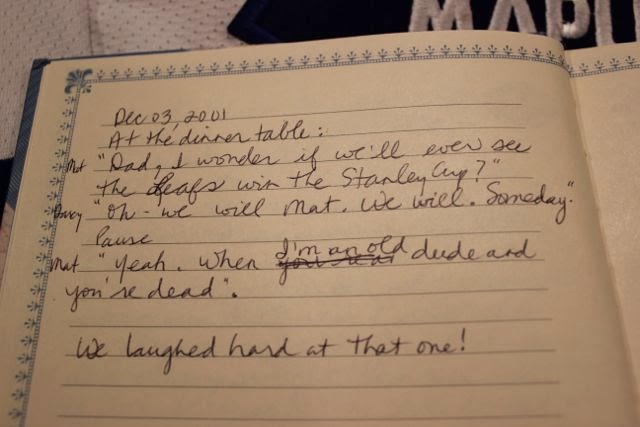 MAPL
Dec 03, 2001
At the dinner table:
Mat "Dad, I wonder if we'll ever see
the Leafs win the Stanley Cup?"
Darcy "Oh - we will Mat. We will. Someday."
Pause
Mat "Yeah. When I'm an old dude and
you're dead".
We laughed hard at that one!